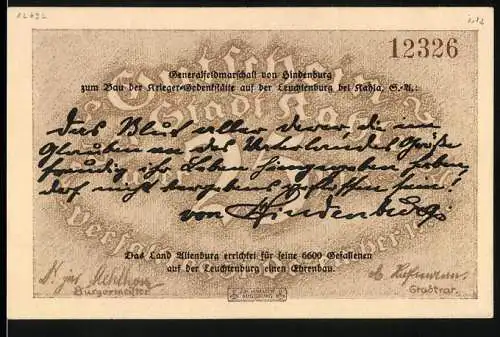 12326
Generalfeldmarschall von Hindenburg
zum Bau der Krieger-Gedenkstätte auf der Leuchtenburg bei Kahla, S.-A.:
Gutschein
Stadt Kahla
Das Blut aller derer, die im
Glauben an des Vaterlandes Größe
freudig ihr Leben hingegeben haben,
darf nicht vergebens geflossen sein!
von Hindenburg
Das Land Altenburg errichtet für seine 6600 Gefallenen
auf der Leuchtenburg einen Ehrenbau.
Bürgermeister
Stadtrat.